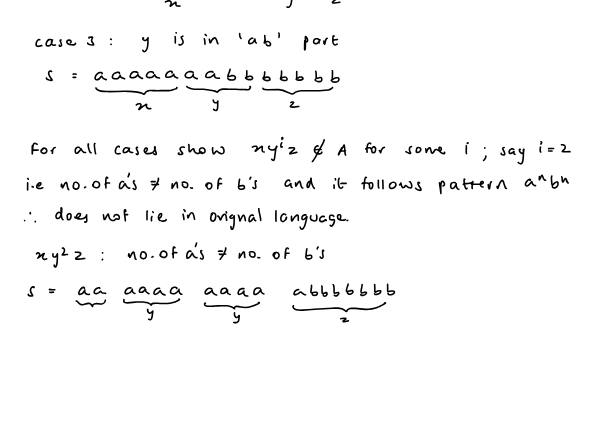 x y z
case 3 : y is in 'ab' part
s = aaaaa aabb bbbbb
x y z
For all cases show xyⁱz ∉ A for some i ; say i=2
i.e no. of a's ≠ no. of b's and it follows pattern aⁿbⁿ
∴ does not lie in orignal language.
xy²z : no. of a's ≠ no. of b's
s = aa aaaa aaaa abbbbbbb
y y z